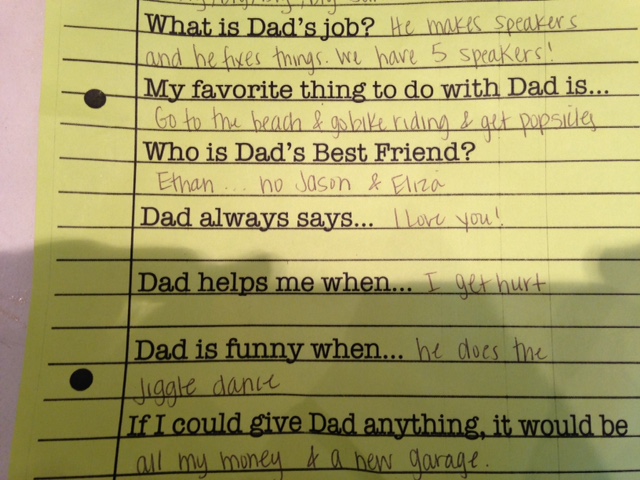 What is Dad's job? He makes speakers
and he fixes things. We have 5 speakers!
My favorite thing to do with Dad is...
Go to the beach & go bike riding & get popsicles
Who is Dad's Best Friend?
Ethan ... no Jason & Eliza
Dad always says... I love you!
Dad helps me when... I get hurt
Dad is funny when... he does the
Jiggle dance
If I could give Dad anything, it would be
all my money & a new garage.